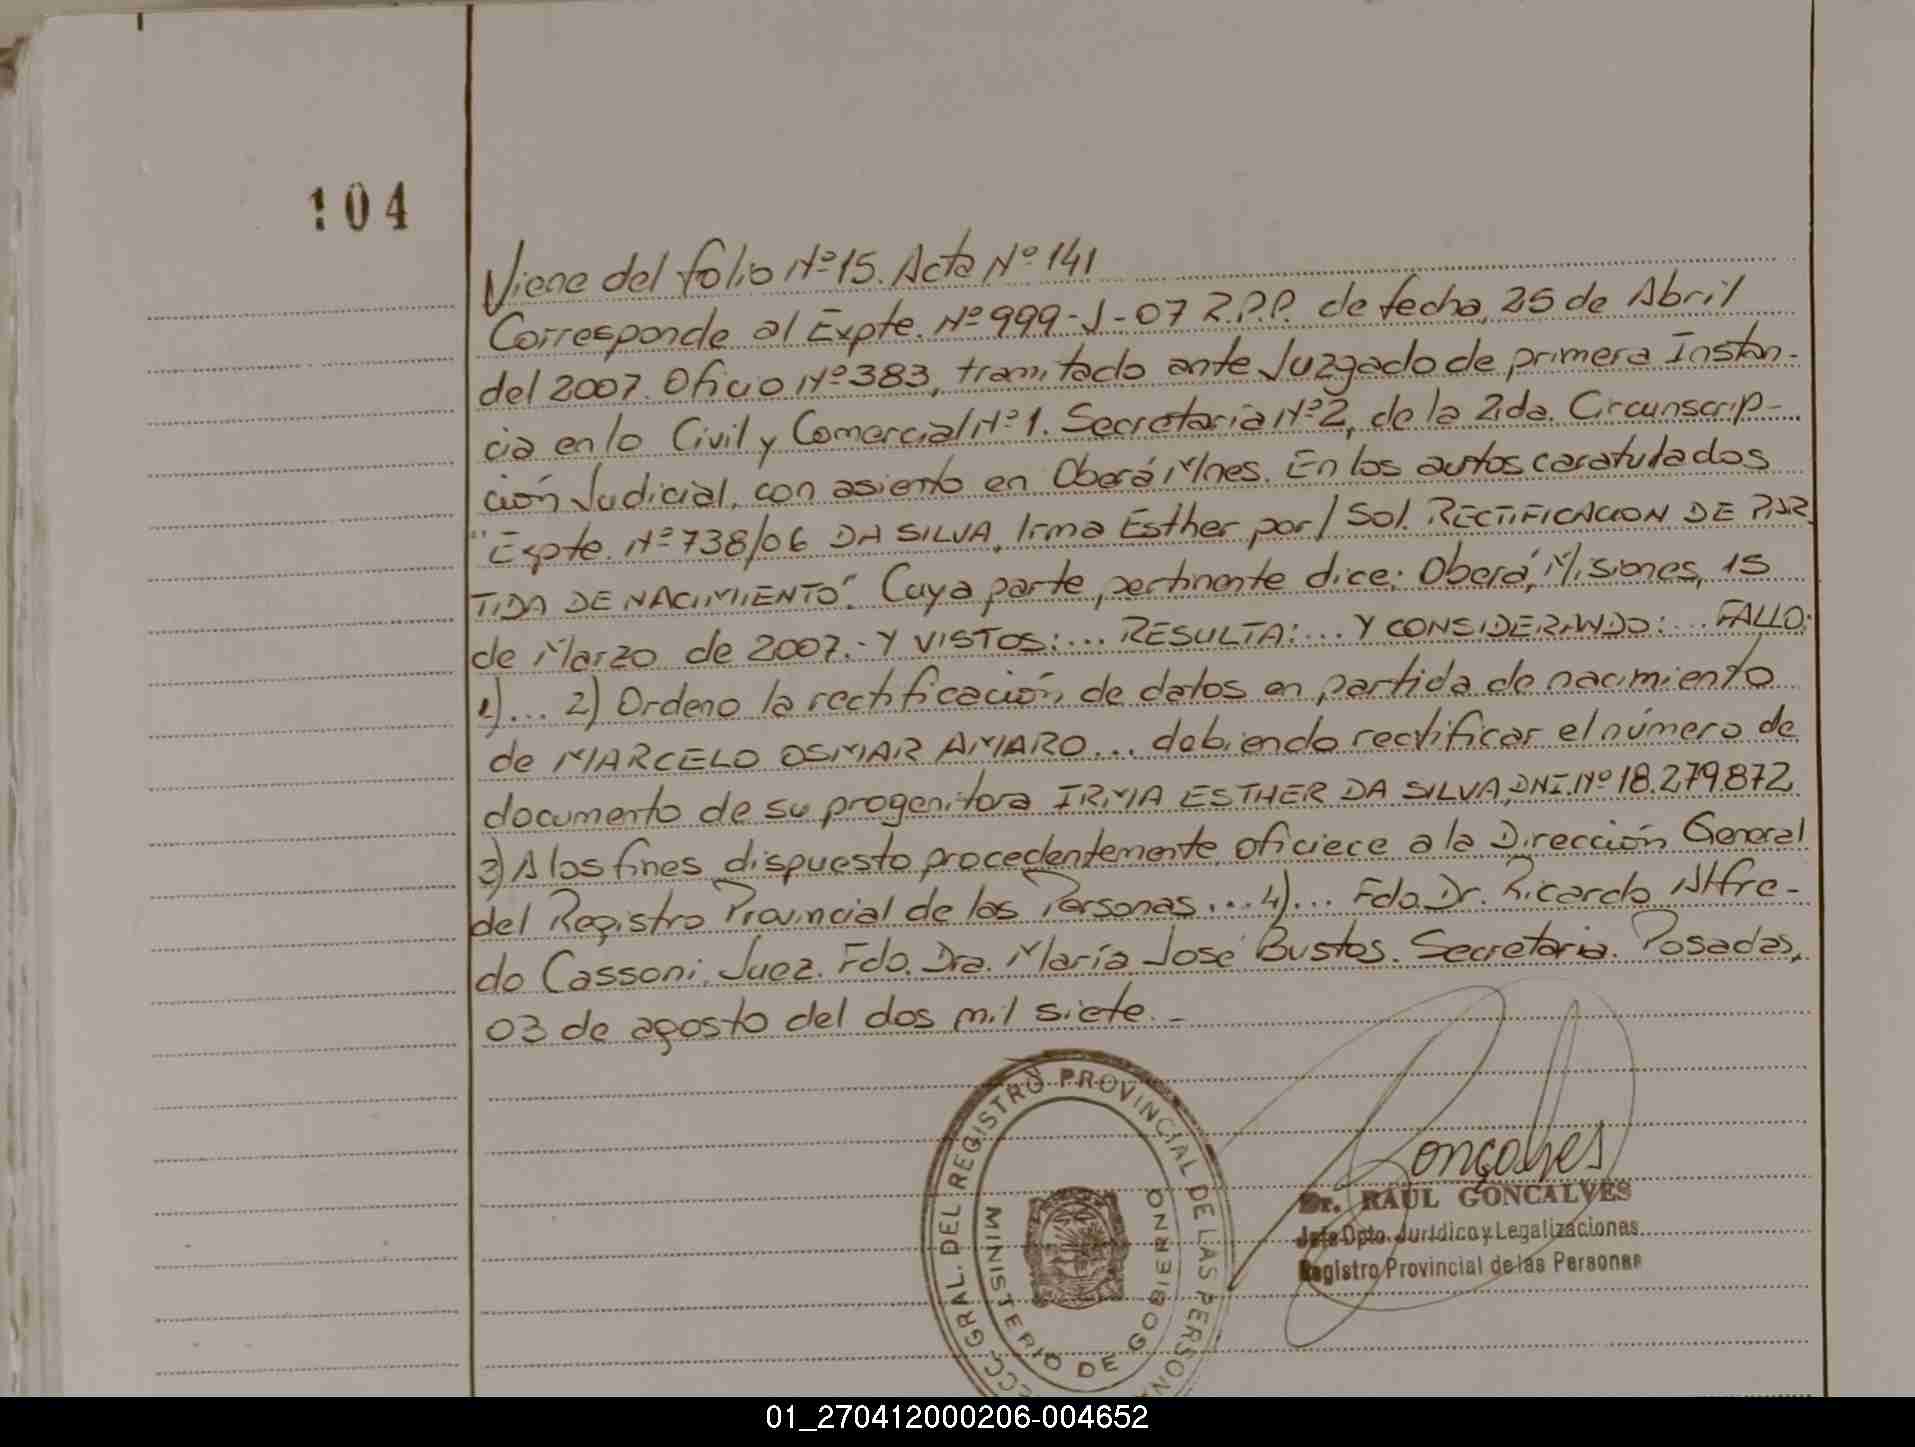 104
Viene del folio Nº 15. Acta Nº 141
Corresponde al Expte. Nº 999-J-07 R.P.P. de fecha, 25 de Abril
del 2007. Oficio Nº 383, tramitado ante Juzgado de primera Instan-
cia en lo Civil y Comercial Nº 1. Secretaria Nº 2, de la 2da. Circunscrip-
ción Judicial, con asiento en Oberá Mnes. En los autos caratulados
"Expte. Nº 738/06 DA SILVA, Irma Esther por/ Sol. RECTIFICACION DE PAR
TIDA DE NACIMIENTO". Cuya parte pertinente dice: Oberá, Misiones, 15
de Marzo de 2007.- Y VISTOS:... RESULTA:... Y CONSIDERANDO:... FALLO:
1)... 2) Ordeno la rectificación de datos en partida de nacimiento
de MARCELO OSMAR AMARO... debiendo rectificar el número de
documento de su progenitora IRMA ESTHER DA SILVA, DNI. Nº 18.279.872,
3) A los fines dispuesto procedentemente oficiece a la Dirección General
del Registro Provincial de las Personas... 4)... Fdo. Dr. Ricardo Alfre-
do Cassoni. Juez. Fdo. Dra. María José Bustos. Secretaria. Posadas,
03 de agosto del dos mil siete.-
GRAL. DEL REGISTRO PROVINCIAL DE LAS PERSONA
MINISTERIO DE GOBIERNO
Gonçalves
Dr. RAUL GONCALVES
Jefe Dpto. Jurídico y Legalizaciones
Registro Provincial de las Personas
01_270412000206-004652